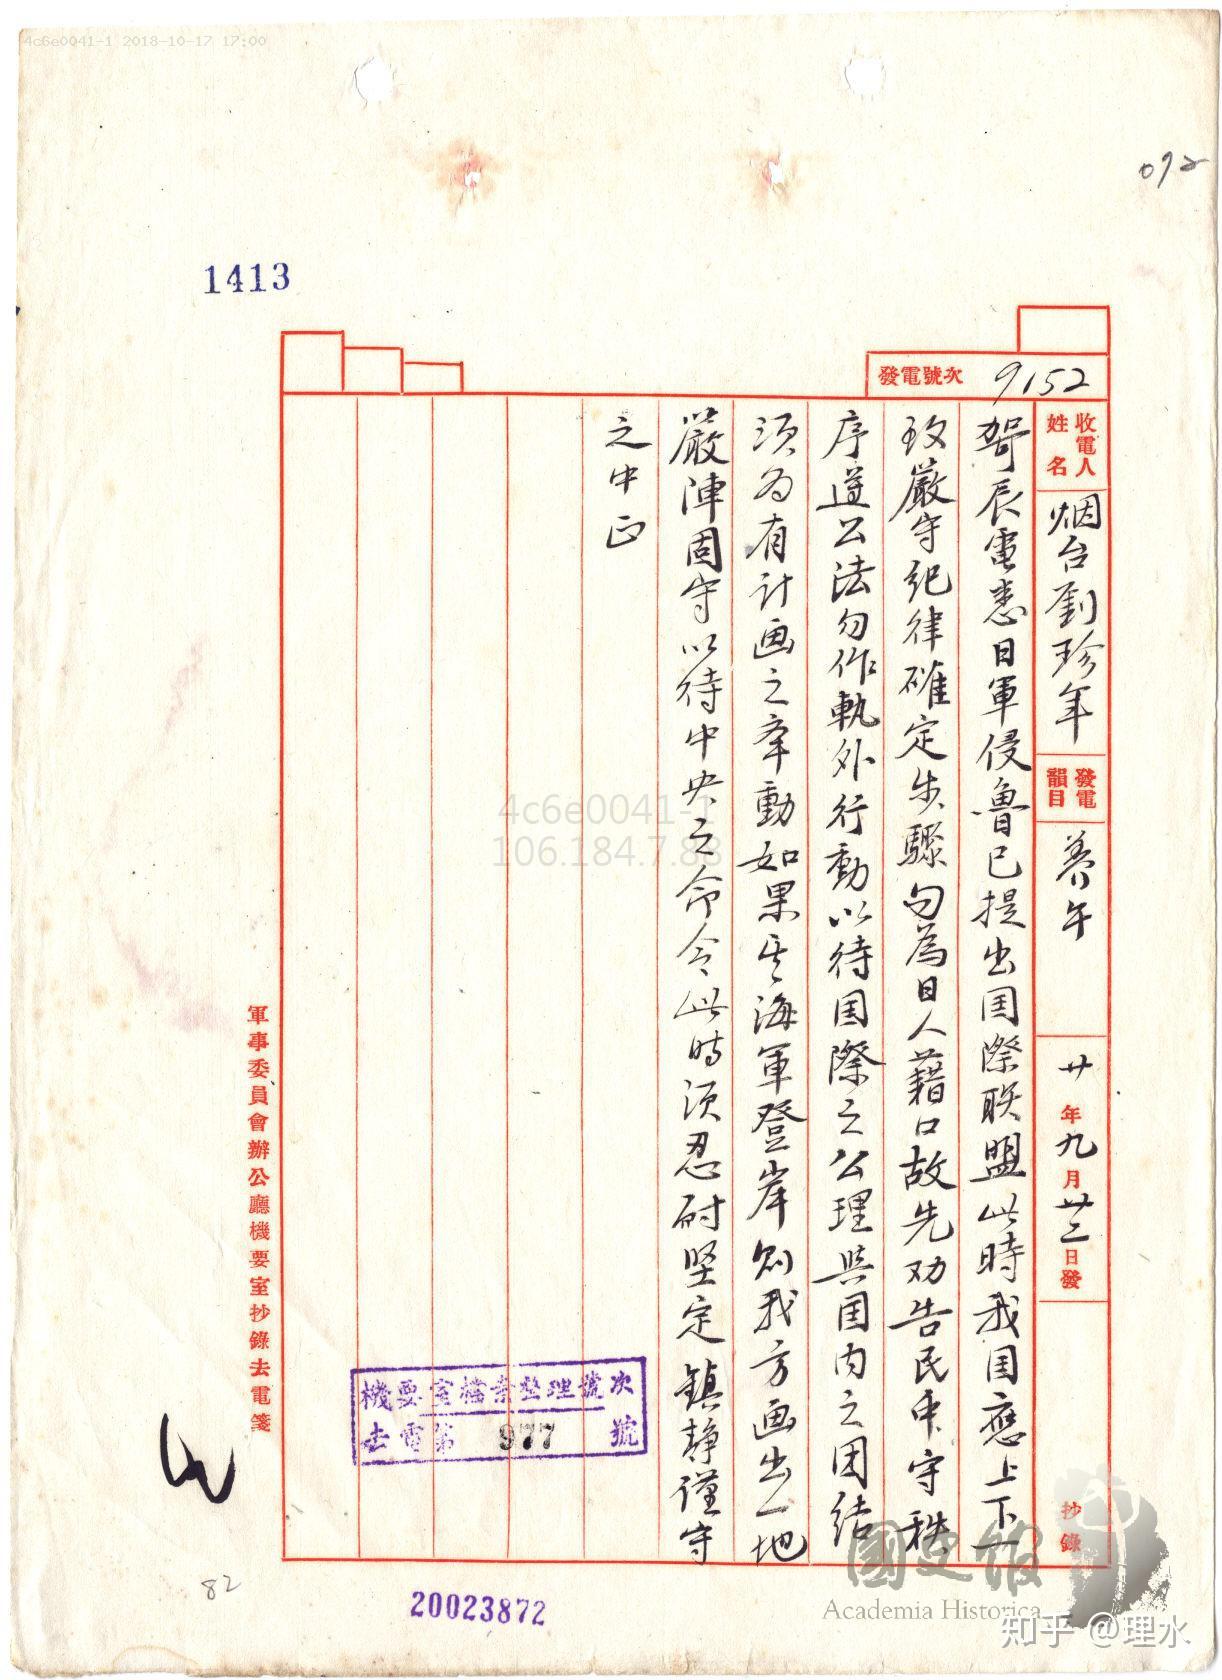 4c6e0041-1 2018-10-17 17:00
092
1413
發電號次 9152
收電人姓名 烟台劉珍年 發電韻目 養午 廿年九月廿二日發 抄錄
辰電悉日軍侵魯已提出国際联盟此時我国應上下一
致嚴守紀律確定步驟勿為日人藉口故先劝告民众守秩
序遵公法勿作軌外行動以待国際之公理與国内之团结
须为有计画之举動如果其海軍登岸则我方画出一地
嚴陣固守以待中央之命令此時须忍耐坚定鎮静谨守
之中正
4c6e0041-1
106.184.7.83
軍事委員會辦公廳機要室抄錄去電箋
機要室檔案整理號次
去電第 977 號
82
20023872
國史館
Academia Historica
知乎 @理水